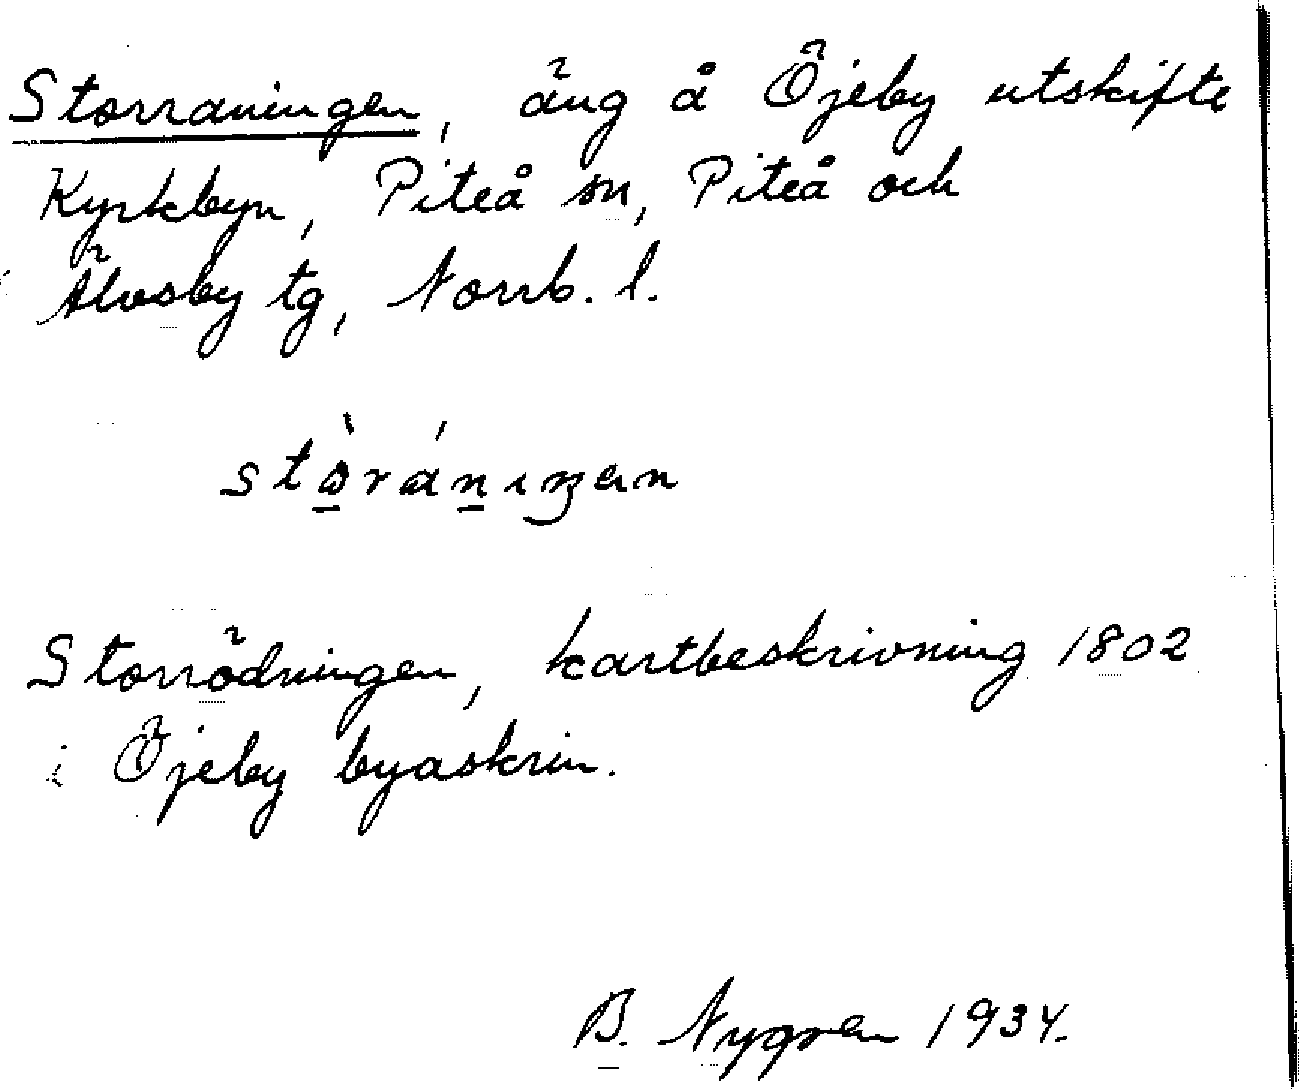 Storraningen, äng å Öjeby utskifte
Kyrkbyn, Piteå sn, Piteå och
Älvsby tg, Norrb. l.
Storrödningen, kartbeskrivning 1802
i Öjeby byaskrin.
B. Nygren 1934.